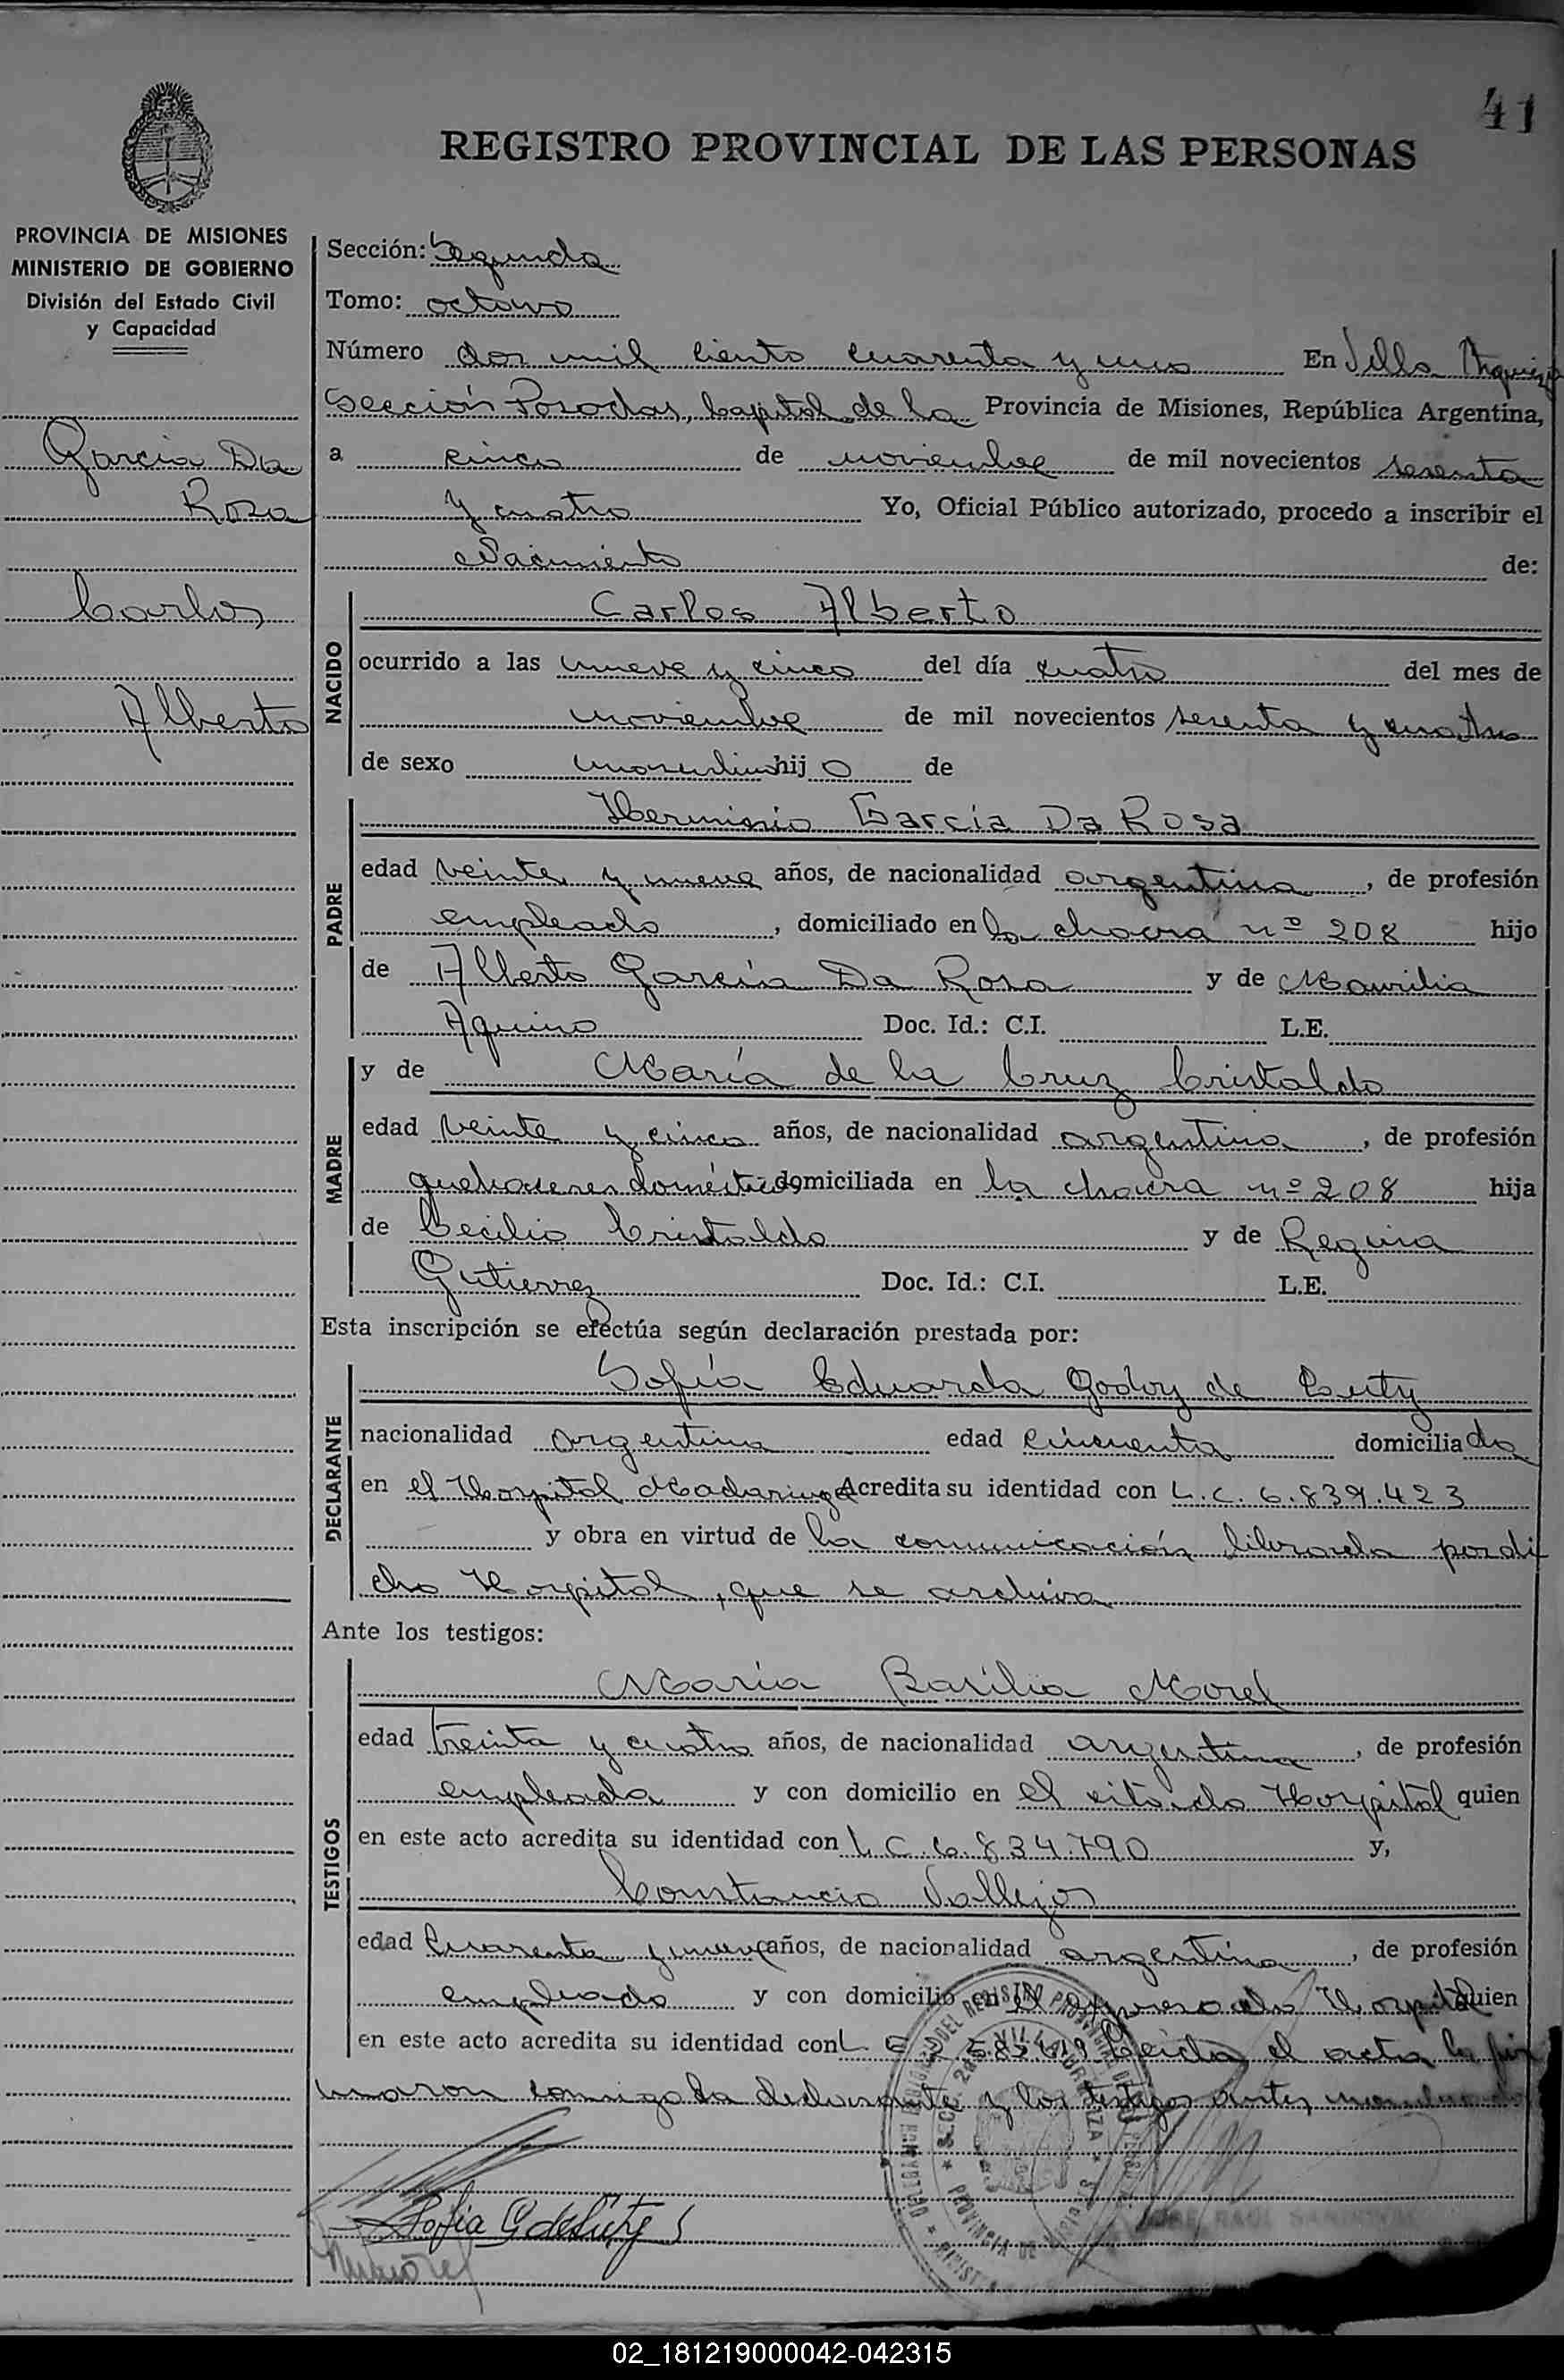 41
REGISTRO PROVINCIAL DE LAS PERSONAS
PROVINCIA DE MISIONES
MINISTERIO DE GOBIERNO
División del Estado Civil
y Capacidad
Garcia Da
Rosa
Carlos
Alberto
Sección: Segunda
Tomo: octavo
Número dos mil ciento cuarenta y uno En Villa Urquiza
Sección Posadas, Capital de la Provincia de Misiones, República Argentina,
a cinco de noviembre de mil novecientos sesenta
y cuatro Yo, Oficial Público autorizado, procedo a inscribir el
Nacimiento de:
NACIDO
Carlos Alberto
ocurrido a las nueve y cinco del día cuatro del mes de
noviembre de mil novecientos sesenta y cuatro
de sexo masculino hijo de
PADRE
Herminio Garcia Da Rosa
edad veinte y nueve años, de nacionalidad argentina, de profesión
empleado, domiciliado en la chacra nº 208 hijo
de Alberto García Da Rosa y de Maurilia
Aquino Doc. Id.: C.I. L.E.
MADRE
y de María de la Cruz Cristaldo
edad veinte y cinco años, de nacionalidad argentina, de profesión
quehaceres domésticos, domiciliada en la chacra nº 208 hija
de Cecilio Cristaldo y de Regina
Gutierrez Doc. Id.: C.I. L.E.
Esta inscripción se efectúa según declaración prestada por:
DECLARANTE
Sofía Eduarda Godoy de
nacionalidad argentina edad cincuenta domiciliada
en el Hospital Madariaga Acredita su identidad con L.C. 6.839.423
y obra en virtud de la comunicación librada por di
cho Hospital, que se archiva
Ante los testigos:
TESTIGOS
María Basilia Morel
edad treinta y cuatro años, de nacionalidad argentina, de profesión
empleada y con domicilio en el citado Hospital quien
en este acto acredita su identidad con L.C. 6.834.790 y,
Constancio Vallejos
edad cuarenta y nueve años, de nacionalidad argentina, de profesión
empleado y con domicilio en el expresado Hospital quien
en este acto acredita su identidad con L. E. Leída el acta la fir
maron conmigo la declarante y los testigos antes
VILLA URQUIZA
PROVINCIA DE
Sofia G de
JOSE RAUL SANDOVAL
02_181219000042-042315